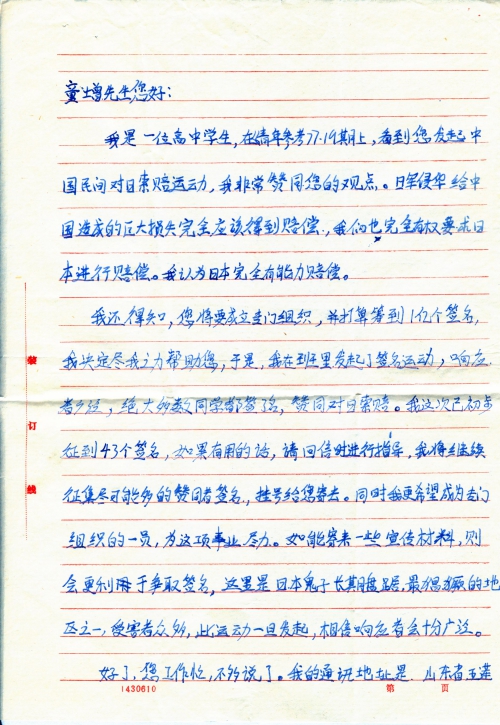 童增先生您好：
我是一位高中学生，在《青年参考》77.19期上，看到您发起中
国民间对日索赔运动，我非常赞同您的观点。日军侵华给中
国造成的巨大损失完全应该得到赔偿，我们也完全有权要求日
本进行赔偿。我认为日本完全有能力赔偿。
我还得知，您将要成立专门组织，并打算筹到1亿个签名，
我决定尽我之力帮助您，于是，我在班里发起了签名运动，响应
者多位，绝大多数同学都签了名，赞同对日索赔。我这次已初步
征到43个签名，如果有用的话，请回信时进行指导，我将继续
征集尽可能多的赞同者签名，挂号给您寄去。同时我更希望成为专门
组织的一员，为这项事业尽力。如能寄来一些宣传材料，则
会更利于争取签名，这里是日本鬼子长期盘踞、最猖獗的地
区之一，受害者众多，此运动一旦发起，相信响应者会十分广泛。
好了，您工作忙，不多说了。我的通讯地址是 山东省五莲
装
订
线
1430610
第 页